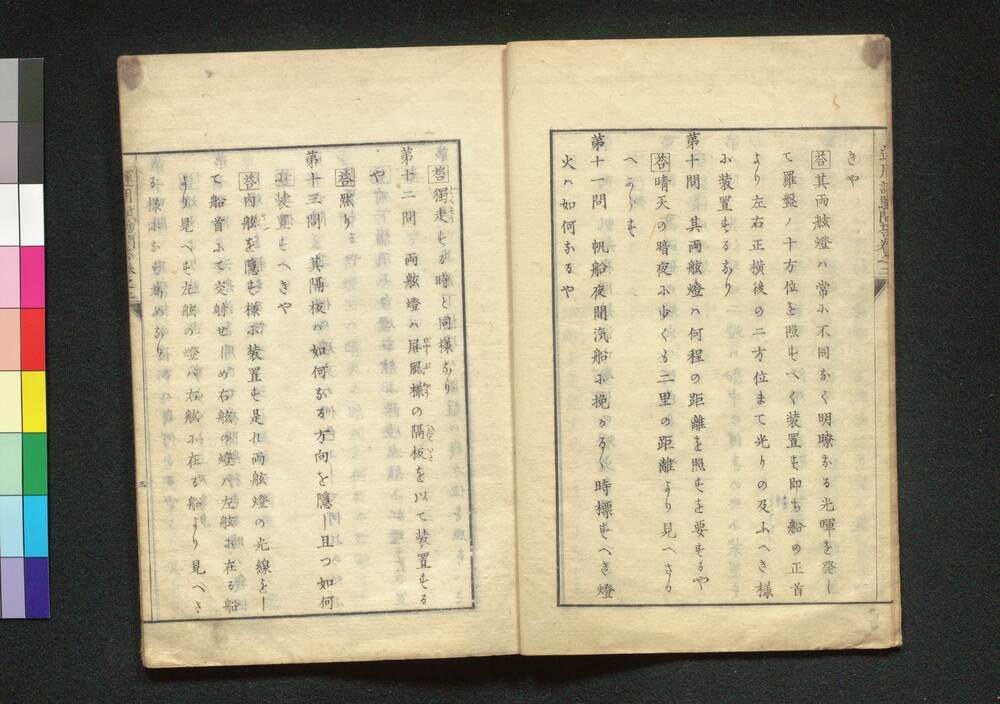 きや
答其両舷燈ハ常ニ不同なく明瞭なる光暉を発し
て羅盤ノ十方位を照すへく装置す即ち船の正首
より左右正横後の二方位まて光りの及ふへき様
に装置するなり
第十問　其両舷燈ハ何程の距離を照すを要するや
答晴天の暗夜に少くも二里の距離より見へさる
へからす
第十一問　帆船夜間汽船に挽かるゝ時標すへき燈
火ハ如何なるや
答獨走する時と同様なり
第十二問　両舷燈ハ屏風様の隔板を以て装置する
や
答然り
第十三問　其隔板ハ如何なる方向を隠し且つ如何
に装置すへきや
答内舷を隠す様に装置す是れ両舷燈の光線をし
て船首にて交射せしめ右舷の燈ハ左舷に在る船
より見へす左舷の燈ハ右舷に在る船より見へさ
る様にする為めなり
三